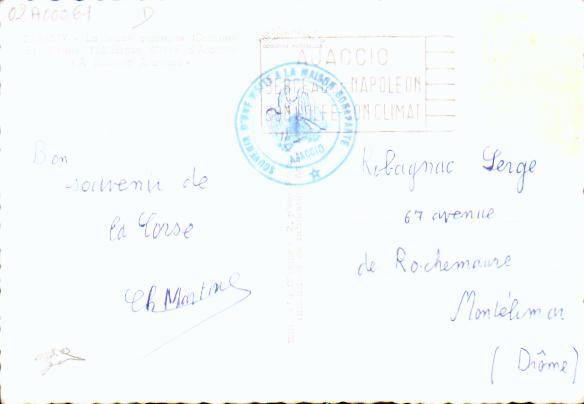 02A00061 D
AJACCIO
BERCEAU DE NAPOLEON
SON GOLFE SON CLIMAT
SOUVENIR D'UNE VISITE A LA MAISON BONAPARTE
AJACCIO
Bon
souvenir de
la Corse
Ch Martine
Serge
67 avenue
de Rochemaure
Montélimar
(Drôme)